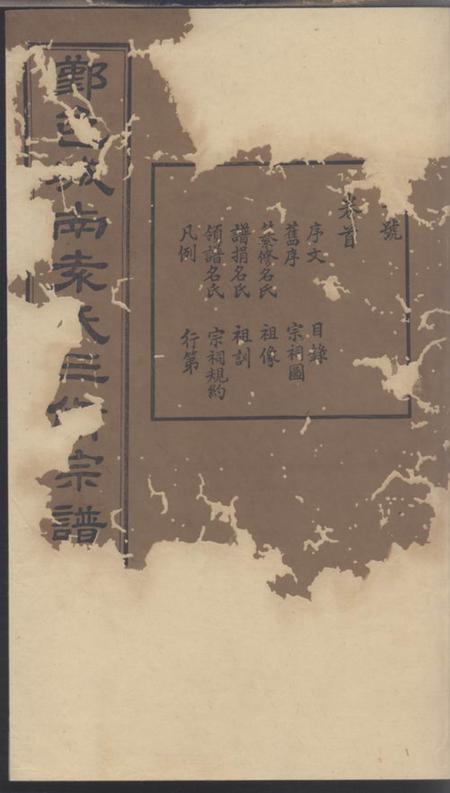 號
卷首
序文 目錄
舊序 宗祠圖
纂修名氏 祖像
譜捐名氏 祖訓
領譜名氏 宗祠規約
凡例 行第
鄞邑城南袁氏三修宗譜